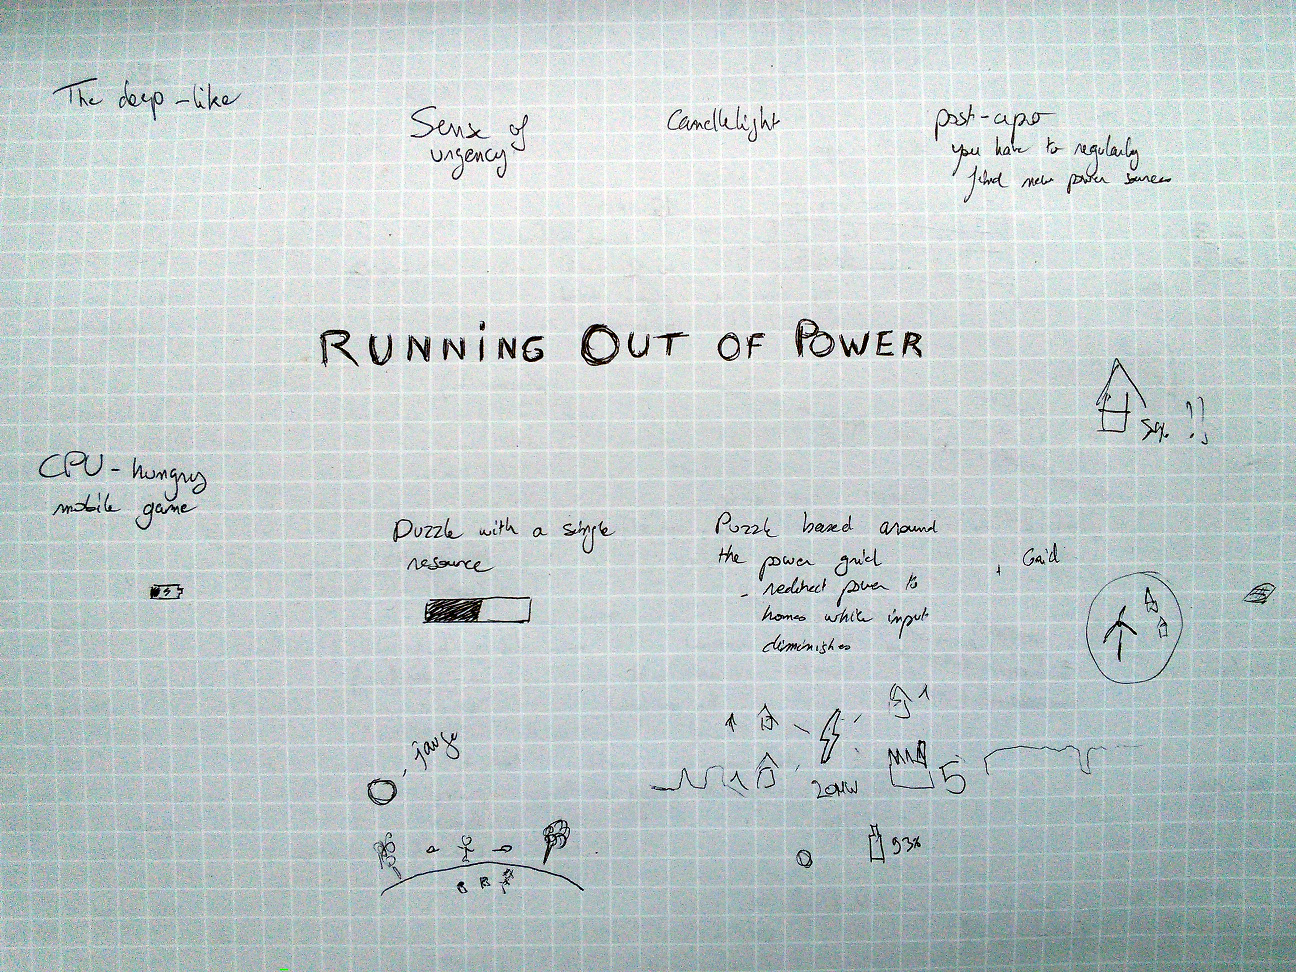 The deep-like
Sense of
urgency
Candlelight
post-apo
you have to regularly
find new power sources
RUNNING OUT OF POWER
50% !!
CPU-hungry
mobile game
Puzzle with a single
resource
Puzzle based around
the power grid
- redirect power to
homes while input
diminishes
+ Grid
jauge
1
20MW
5
93%